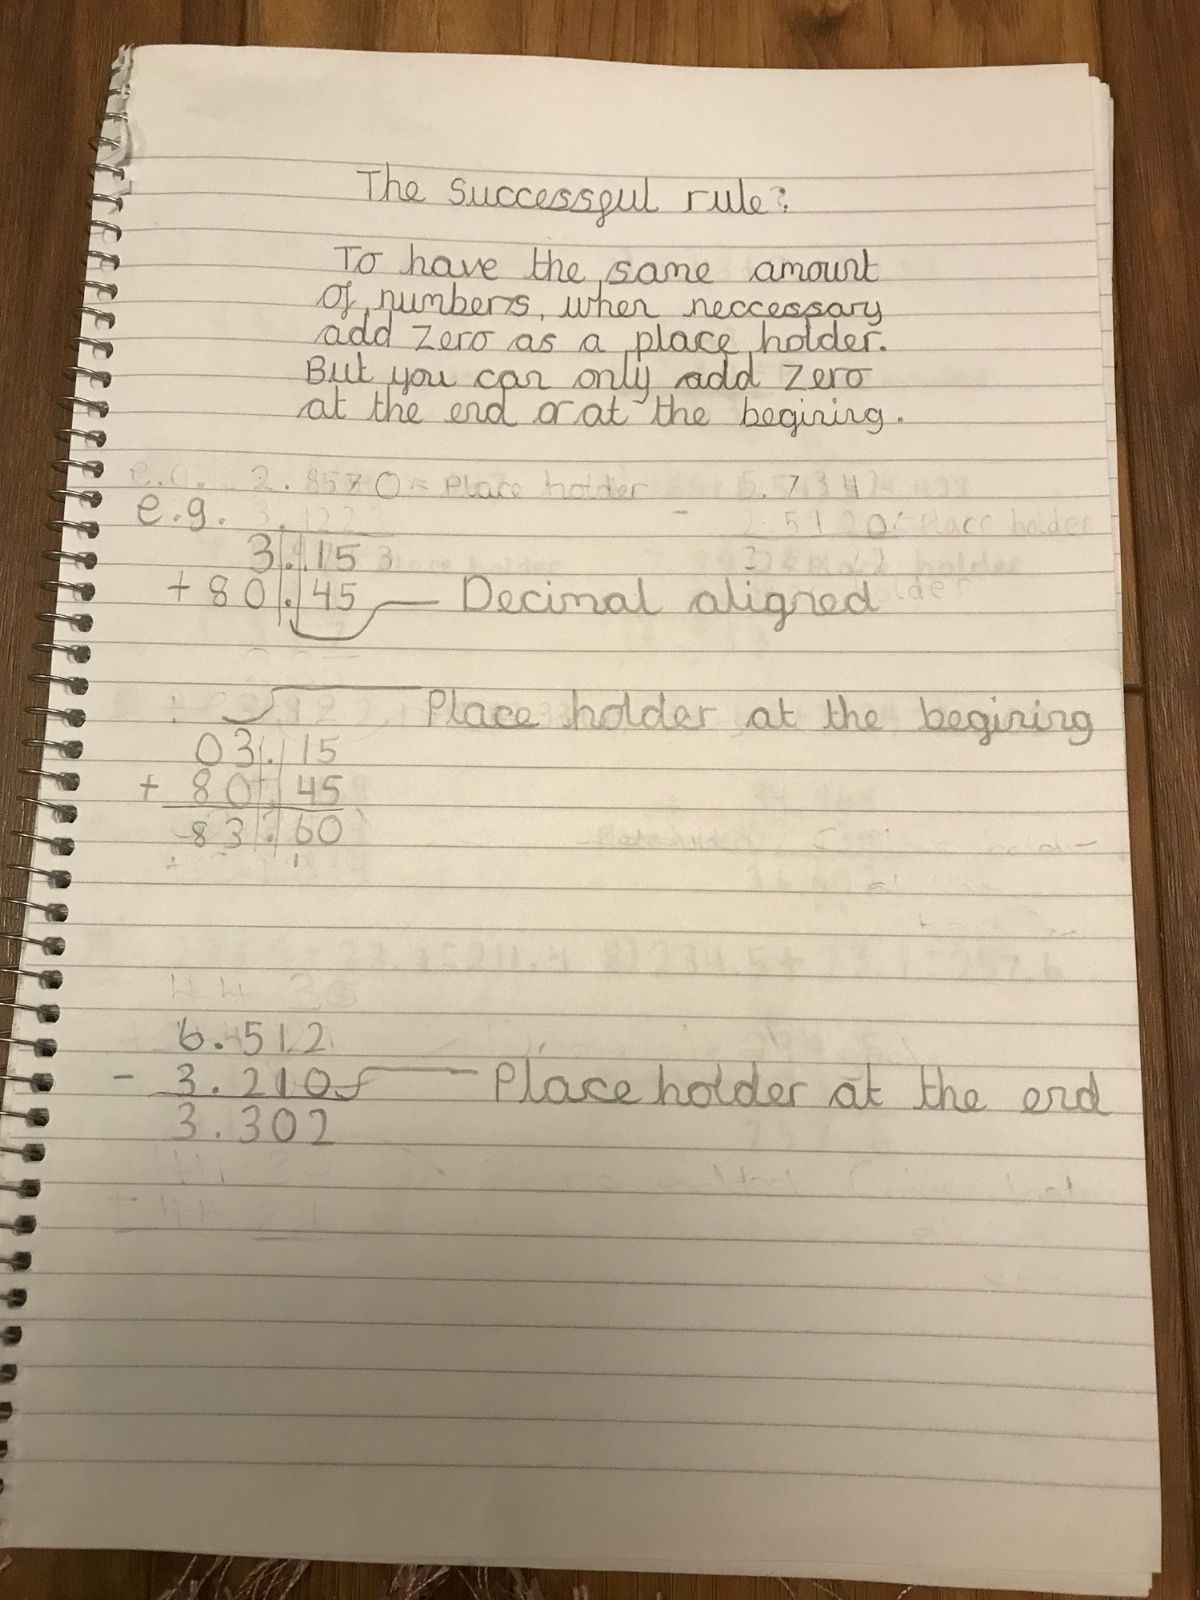 The Successful rule:
To have the same amount
of numbers, when neccessary
add zero as a place holder.
But you can only add zero
at the end or at the begining.
e.g. 2.8570 = Place holder 5.734
e.g. - 2.5120 = Place holder
3.15
+ 80.45 Decimal aligned
Place holder at the begining
03.15
+ 80.45
83.60
1
6.512
- 3.210 Place holder at the end
3.302